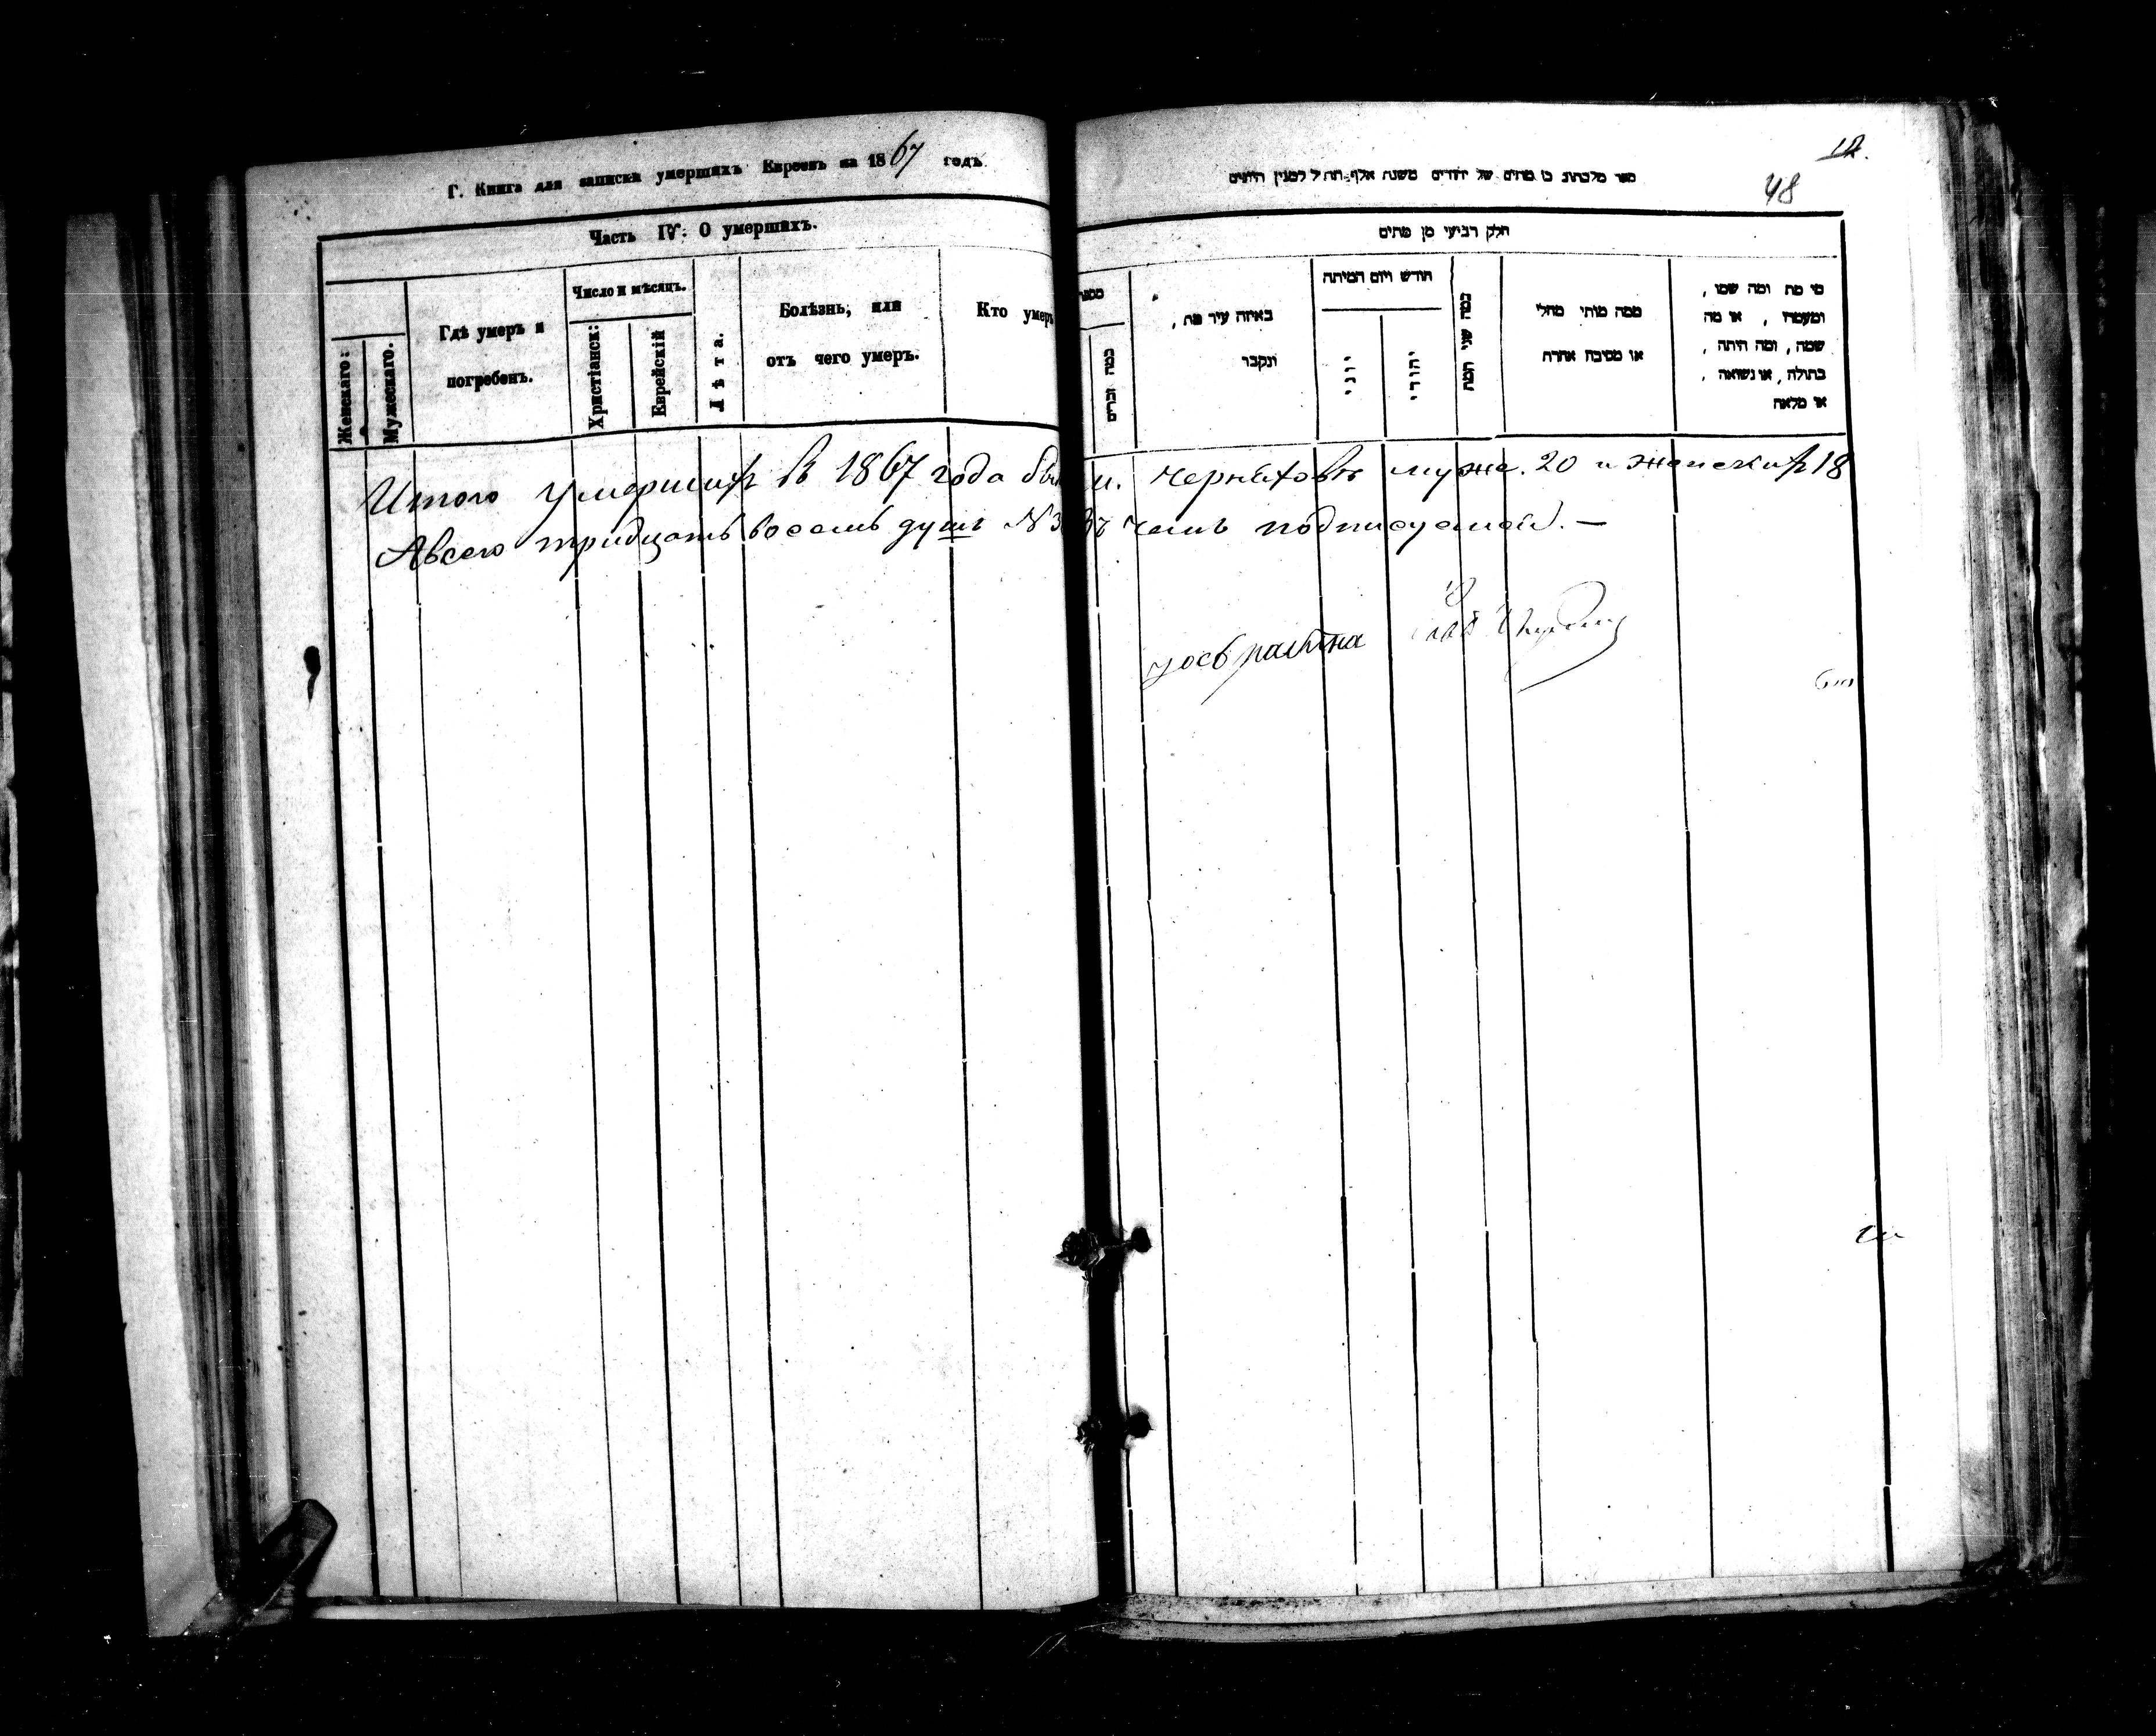 Г. Книга для записки умершихъ Евреевъ на 1867 годъ
Часть IV: О умершихъ.
Женскаго:
Мужескаго.
Гдѣ умеръ и
погребенъ.
Число и мѣсяцъ.
Христіанск:
Еврейскій
Лѣта.
Болѣзнь, или
отъ чего умеръ.
Кто умеръ
12.
48
של יהודים משנת אלף
חלק רביעי מן מתים
כמה זכרים
באיזה עיר מת,
ונקבר
חודש ויום המיתה
יוני
יהודי
כמה שני המת
ממה מותי מחלי
או מסיבה אחרת
מי מת ומה שמו,
ומעמדו, או מה
שמה, ומה היתה,
בתולה, או נשואה,
או מלאה
Итого умершихъ в 1867 года м. Черняховѣ муже. 20 и женскихъ 18
Авсего тридцать восемь душъ въ чемъ подписуемся. —